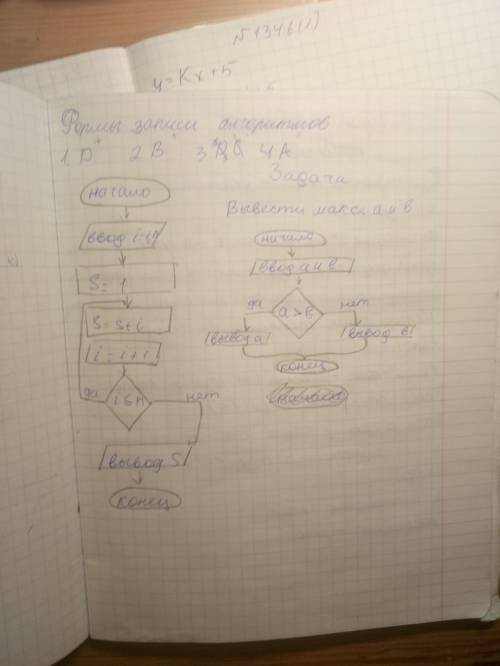 №1346(1)
y=Kx+5
Формы записи алгоритмов
1. D+ 2 B 3 4 A
Задача
Вывести макс. a и в
начало
ввод
S= 1
S= S+i
i = i+1
i≤n
да
нет
вывод S
конец
начало
ввод a и в
a>в
да
нет
вывод a
вывод в
конец